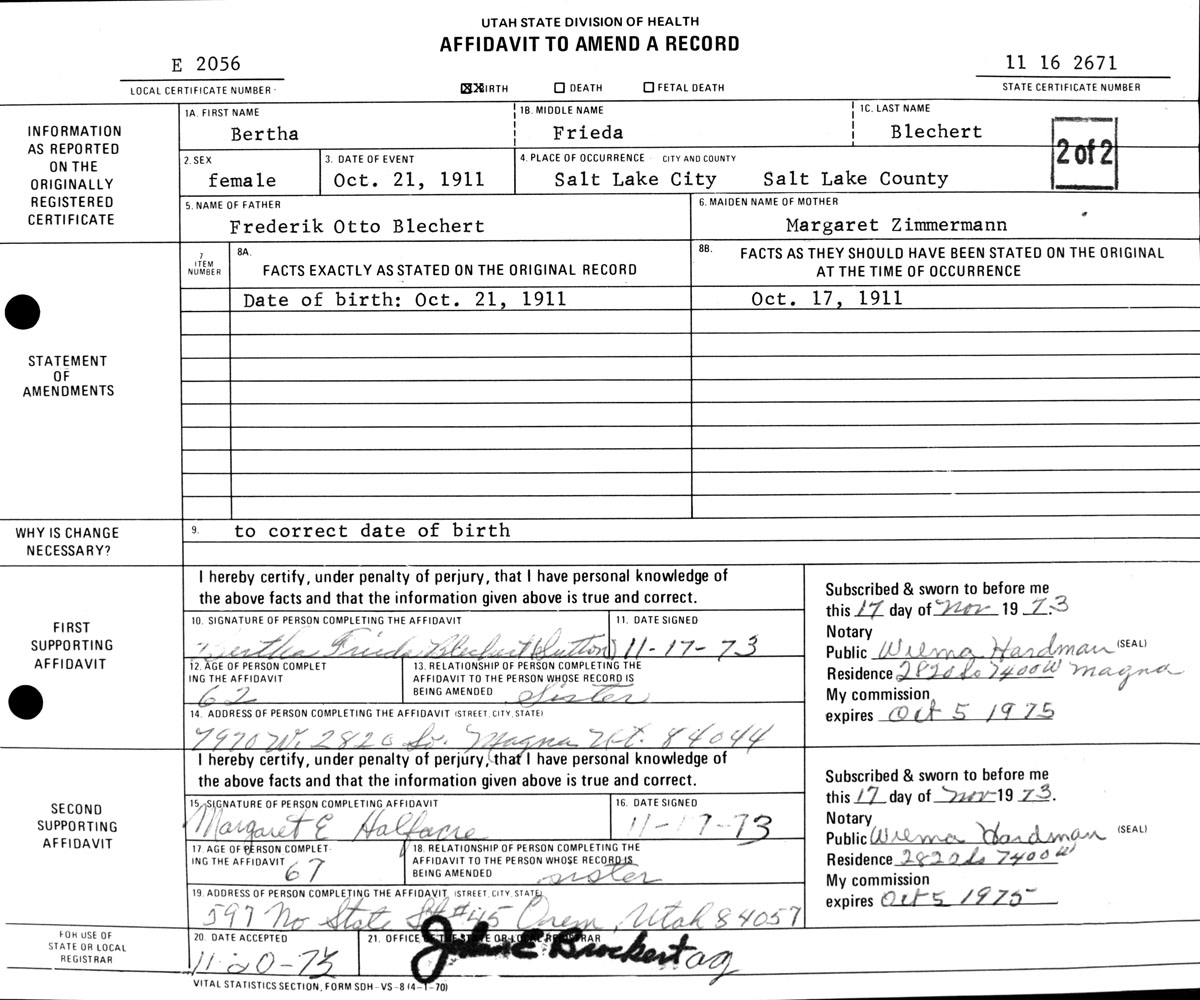 UTAH STATE DIVISION OF HEALTH
AFFIDAVIT TO AMEND A RECORD
E 2056
LOCAL CERTIFICATE NUMBER
☒ BIRTH ☐ DEATH ☐ FETAL DEATH
11 16 2671
STATE CERTIFICATE NUMBER
INFORMATION AS REPORTED ON THE ORIGINALLY REGISTERED CERTIFICATE
1A. FIRST NAME
Bertha
1B. MIDDLE NAME
Frieda
1C. LAST NAME
Blechert
2 of 2
2. SEX
female
3. DATE OF EVENT
Oct. 21, 1911
4. PLACE OF OCCURRENCE CITY AND COUNTY
Salt Lake City Salt Lake County
5. NAME OF FATHER
Frederik Otto Blechert
6. MAIDEN NAME OF MOTHER
Margaret Zimmermann
STATEMENT OF AMENDMENTS
7 ITEM NUMBER
8A.
FACTS EXACTLY AS STATED ON THE ORIGINAL RECORD
8B.
FACTS AS THEY SHOULD HAVE BEEN STATED ON THE ORIGINAL
AT THE TIME OF OCCURRENCE
Date of birth: Oct. 21, 1911
Oct. 17, 1911
WHY IS CHANGE NECESSARY?
9. to correct date of birth
FIRST SUPPORTING AFFIDAVIT
I hereby certify, under penalty of perjury, that I have personal knowledge of
the above facts and that the information given above is true and correct.
10. SIGNATURE OF PERSON COMPLETING THE AFFIDAVIT
Bertha Frieda Blechert (Sutton)
11. DATE SIGNED
11-17-73
12. AGE OF PERSON COMPLET
ING THE AFFIDAVIT
62
13. RELATIONSHIP OF PERSON COMPLETING THE
AFFIDAVIT TO THE PERSON WHOSE RECORD IS
BEING AMENDED Sister
14. ADDRESS OF PERSON COMPLETING THE AFFIDAVIT (STREET, CITY, STATE)
7970 W. 2820 So. Magna Ut. 84044
Subscribed & sworn to before me
this 17 day of Nov 19 73
Notary
Public Wilma Hardman (SEAL)
Residence 2820 So 7400 W Magna
My commission
expires Oct 5 1975
SECOND SUPPORTING AFFIDAVIT
I hereby certify, under penalty of perjury, that I have personal knowledge of
the above facts and that the information given above is true and correct.
15. SIGNATURE OF PERSON COMPLETING AFFIDAVIT
Margaret E Halfacre
16. DATE SIGNED
11-17-73
17. AGE OF PERSON COMPLET-
ING THE AFFIDAVIT 67
18. RELATIONSHIP OF PERSON COMPLETING THE
AFFIDAVIT TO THE PERSON WHOSE RECORD IS
BEING AMENDED sister
19. ADDRESS OF PERSON COMPLETING THE AFFIDAVIT (STREET, CITY, STATE)
597 No State St #45 Orem, Utah 84057
Subscribed & sworn to before me
this 17 day of Nov 19 73.
Notary
Public Wilma Hardman (SEAL)
Residence 2820 So 7400 W
My commission
expires Oct 5 1975
FOR USE OF STATE OR LOCAL REGISTRAR
20. DATE ACCEPTED
11-20-73
21. OFFICE OF THE STATE OR LOCAL REGISTRAR
John E Brockert ag
VITAL STATISTICS SECTION, FORM SDH-VS-8 (4-1-70)